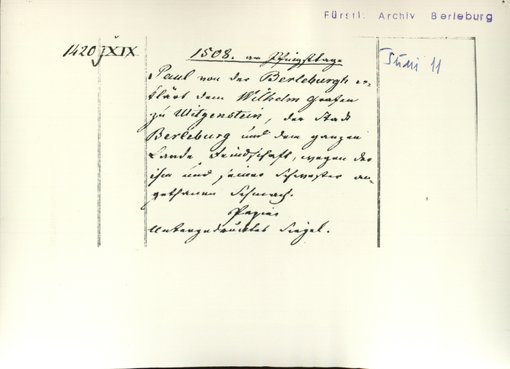 Fürstl. Archiv Berleburg
1420 XIX
1508. am Pfingsttage
Juni 11
Paul von der Berleburgh er-
klärt dem Wilhelm Grafen
zu Witgenstein, der Stadt
Berleburg und dem ganzen
Lande Feindschaft, wegen der
ihm und seiner Schwester an-
gethanen Schmach.
Papier
Untergedrucktes Siegel.